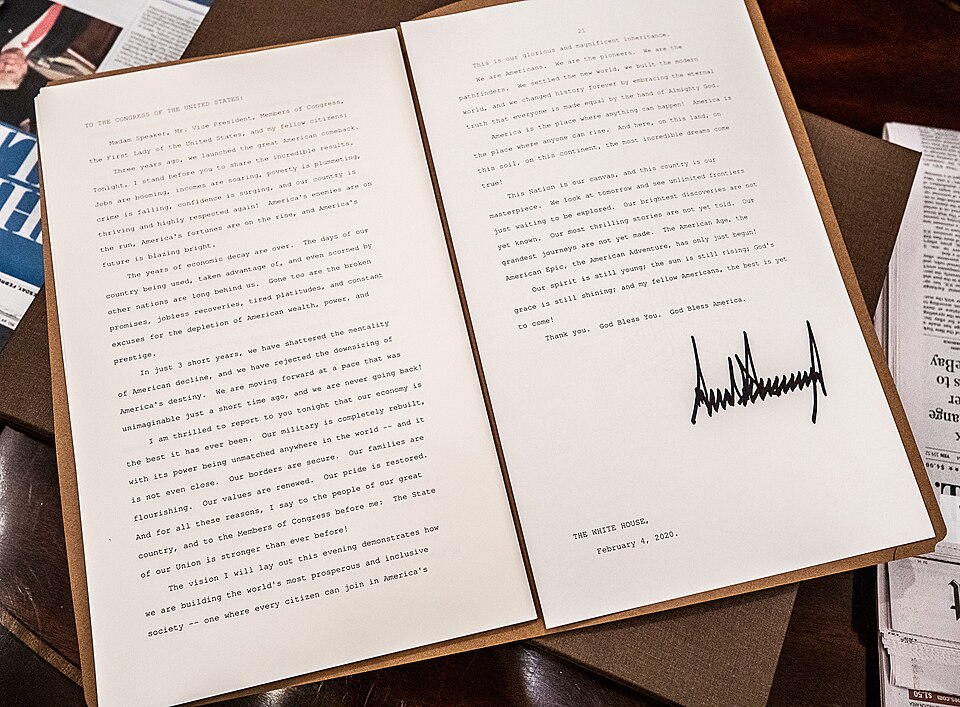 TO THE CONGRESS OF THE UNITED STATES:
Madam Speaker, Mr. Vice President, Members of Congress,
the First Lady of the United States, and my fellow citizens:
Three years ago, we launched the great American comeback.
Tonight, I stand before you to share the incredible results.
Jobs are booming, incomes are soaring, poverty is plummeting,
crime is falling, confidence is surging, and our country is
thriving and highly respected again! America's enemies are on
the run, America's fortunes are on the rise, and America's
future is blazing bright.
The years of economic decay are over. The days of our
country being used, taken advantage of, and even scorned by
other nations are long behind us. Gone too are the broken
promises, jobless recoveries, tired platitudes, and constant
excuses for the depletion of American wealth, power, and
prestige.
In just 3 short years, we have shattered the mentality
of American decline, and we have rejected the downsizing of
America's destiny. We are moving forward at a pace that was
unimaginable just a short time ago, and we are never going back!
I am thrilled to report to you tonight that our economy is
the best it has ever been. Our military is completely rebuilt,
with its power being unmatched anywhere in the world -- and it
is not even close. Our borders are secure. Our families are
flourishing. Our values are renewed. Our pride is restored.
And for all these reasons, I say to the people of our great
country, and to the Members of Congress before me: The State
of our Union is stronger than ever before!
The vision I will lay out this evening demonstrates how
we are building the world's most prosperous and inclusive
society -- one where every citizen can join in America's
21
This is our glorious and magnificent inheritance.
We are Americans. We are the pioneers. We are the
pathfinders. We settled the new world, we built the modern
world, and we changed history forever by embracing the eternal
truth that everyone is made equal by the hand of Almighty God.
America is the place where anything can happen! America is
the place where anyone can rise. And here, on this land, on
this soil, on this continent, the most incredible dreams come
true!
This Nation is our canvas, and this country is our
masterpiece. We look at tomorrow and see unlimited frontiers
just waiting to be explored. Our brightest discoveries are not
yet known. Our most thrilling stories are not yet told. Our
grandest journeys are not yet made. The American Age, the
American Epic, the American Adventure, has only just begun!
Our spirit is still young; the sun is still rising; God's
grace is still shining; and my fellow Americans, the best is yet
to come!
Thank you. God Bless You. God Bless America.
THE WHITE HOUSE,
February 4, 2020.
eBay
s to
er
ange
$4.00
$1.50